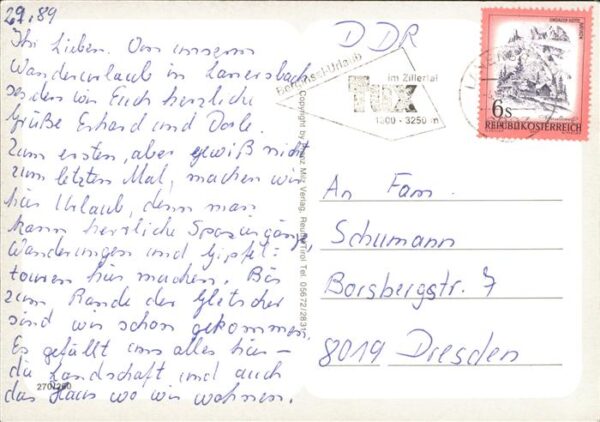 29.89
Ihr Lieben. Von unserem
Wanderurlaub in Lanersbach
senden wir Euch herzliche
Grüße Erhard und Dorle.
Zum ersten, aber gewiß nicht
zum letzten Mal, machen wir
hier Urlaub, denn man
kann herrliche Spaziergänge,
Wanderungen und Gipfel-
touren hier machen. Bis
zum Rande der Gletscher
sind wir schon gekommen.
Es gefällt uns alles hier –
die Landschaft und auch
das Haus wo wir wohnen.
270/260
Copyright by Franz Milz Verlag, Reutte/Tirol Tel. 05672/2831
DDR
Berg-Insel-Urlaub
Tux
im Zillertal
1300 - 3250 m
6s
REPUBLIK ÖSTERREICH
An Fam.
Schumann
Borsbergstr. 7
8019 Dresden